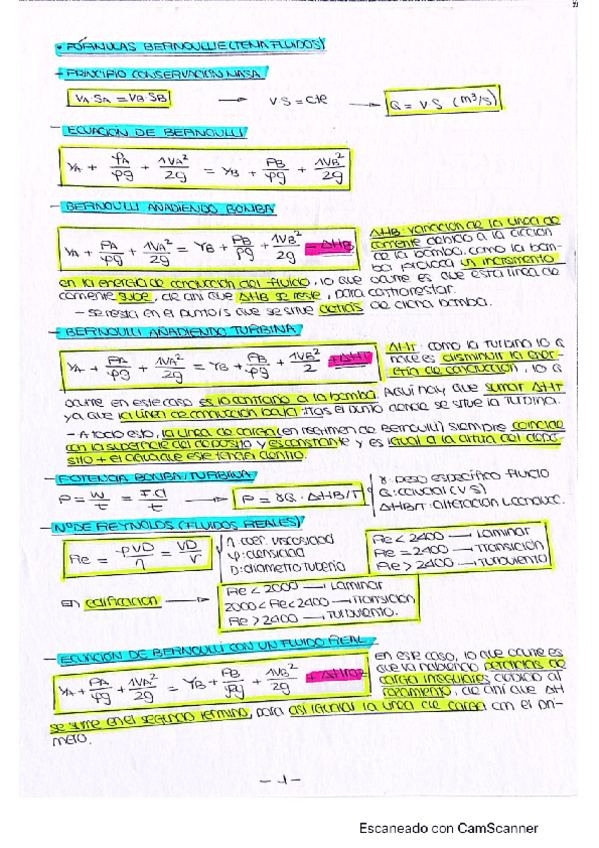 • FÓRMULAS BERNOULLIE (TEMA FLUIDOS)
- PRINCIPIO CONSERVACION MASA
VA SA = VB SB → V S = cte → Q = V·S (m³/s)
- ECUACION DE BERNOULLI
YA + PA/φg + 1VA²/2g = YB + PB/φg + 1VB²/2g
- BERNOULLI AÑADIENDO BOMBA
YA + PA/φg + 1VA²/2g = YB + PB/φg + 1VB²/2g - ΔHB
ΔHB variación de la línea de
corriente debido a la acción
de la bomba, como la bom-
ba provoca un incremento
en la energía de conducción del fluido, lo que
ocurre es que esta línea de
corriente sube, de ahí que ΔHB se reste, para contrarrestar.
- se resta en el punto/s que se situe detrás de dicha bomba.
- BERNOULLI AÑADIENDO TURBINA
YA + PA/φg + 1VA²/2g = YB + PB/φg + 1VB²/2 + ΔHT
ΔHT como la turbina lo q
hace es disminuir la ener-
gía de conducción, lo q
ocurre en este caso es lo contrario a la bomba. Aquí hay que sumar ΔHT
ya que la línea de conducción baja tras el punto donde se situe la turbina.
- A todo esto, la línea de carga (en regimen de Bernoulli) siempre coincide
con la superficie del deposito y es constante y es igual a la altura del depo-
sito + el agua que este tenga dentro.
- POTENCIA BOMBA/TURBINA
P = W/t = F·d/t → P = γQ · ΔHB/T
γ: peso especifico fluido
Q: caudal (V·S)
ΔHB/T: alteración L.conducc.
- Nº DE REYNOLDS (FLUIDOS REALES)
Re = φVD/η = VD/V
η coef. viscosidad
φ: densidad
D: diametro tubería
Re < 2400 → Laminar
Re = 2400 → Transición
Re > 2400 → Turbulento
En edificación →
Re < 2000 → Laminar
2000 < Re < 2400 → Transición
Re > 2400 → Turbulento.
- ECUACIÓN DE BERNOULLI CON UN FLUIDO REAL
YA + PA/φg + 1VA²/2g = YB + PB/φg + 1VB²/2g
en este caso, lo que ocurre es
que va habiendo perdidas de
carga irregulares debido al
rozamiento, de ahí que ΔH
se sume en el segundo termino, para así igualar la línea de carga con el pri-
mero.
- 1 -
Escaneado con CamScanner